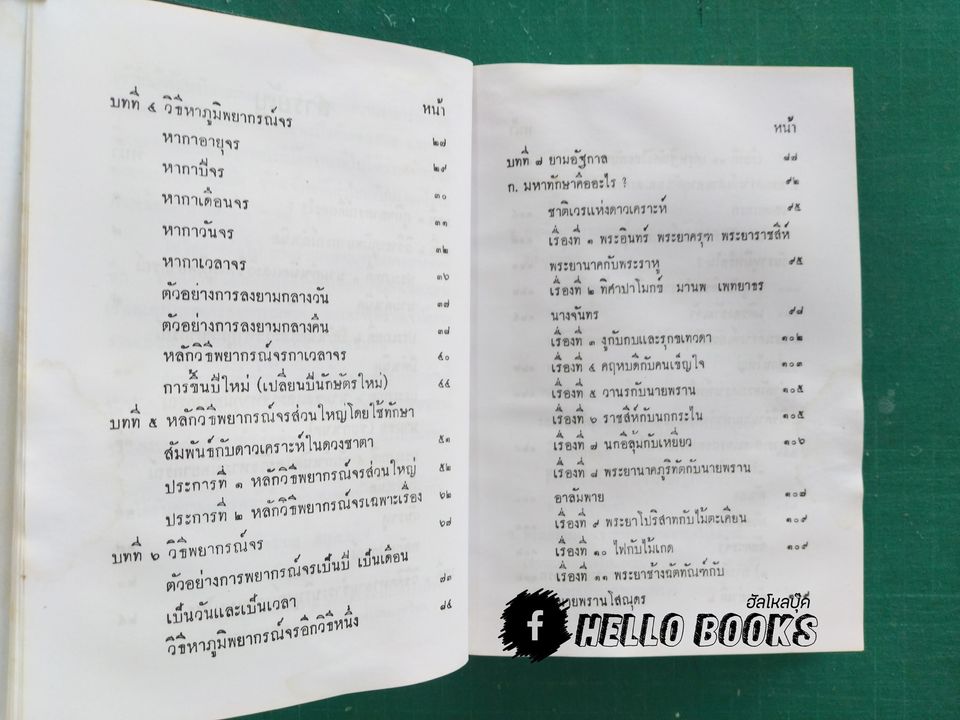 หน้า
บทที่ ๔ วิธีหาภูมิพยากรณ์จร ๒๗
หากาอายุจร ๒๙
หากาปีจร ๓๐
หากาเดือนจร ๓๑
หากาวันจร ๓๒
หากาเวลาจร ๓๖
ตัวอย่างการลงยามกลางวัน ๓๗
ตัวอย่างการลงยามกลางคืน ๓๘
หลักวิธีพยากรณ์จรกาเวลาจร ๔๐
การขึ้นปีใหม่ (เปลี่ยนปีนักษัตรใหม่) ๔๔
บทที่ ๕ หลักวิธีพยากรณ์จรส่วนใหญ่โดยใช้ทักษา
สัมพันธ์กับดาวเคราะห์ในดวงชาตา ๕๑
ประการที่ ๑ หลักวิธีพยากรณ์จรส่วนใหญ่ ๕๒
ประการที่ ๒ หลักวิธีพยากรณ์จรเฉพาะเรื่อง ๖๒
บทที่ ๖ วิธีพยากรณ์จร ๖๗
ตัวอย่างการพยากรณ์จรเป็นปี เป็นเดือน
เป็นวันและเป็นเวลา ๘๓
วิธีหาภูมิพยากรณ์จรอีกวิธีหนึ่ง ๘๔
หน้า
บทที่ ๗ ยามอัฐกาล ๘๗
ก. มหาทักษาคืออะไร ? ๙๒
ชาติเวรแห่งดาวเคราะห์ ๙๕
เรื่องที่ ๑ พระอินทร์ พระยาครุฑ พระยาราชสีห์
พระยานาคกับพระราหู ๙๕
เรื่องที่ ๒ ทิศาปาโมกข์ มานพ เพทยาธร
นางจันทร ๙๘
เรื่องที่ ๓ งูกับกบและรุกขเทวดา ๑๐๒
เรื่องที่ ๔ คฤหบดีกับคนเข็ญใจ ๑๐๓
เรื่องที่ ๕ วานรกับนายพราน ๑๐๕
เรื่องที่ ๖ ราชสีห์กับนกกระไน ๑๐๕
เรื่องที่ ๗ นกอีลุ้มกับเหยี่ยว ๑๐๖
เรื่องที่ ๘ พระยานาคภูริทัตกับนายพราน
อาลัมพาย ๑๐๗
เรื่องที่ ๙ พระยาโปริสาทกับไม้ตะเคียน ๑๐๙
เรื่องที่ ๑๐ ไฟกับไม้เกด ๑๐๙
เรื่องที่ ๑๑ พระยาช้างฉัตทัณฑ์กับ
นายพรานโสณุดร
ฮัลโหลบุ๊ค
f HELLO BOOKS